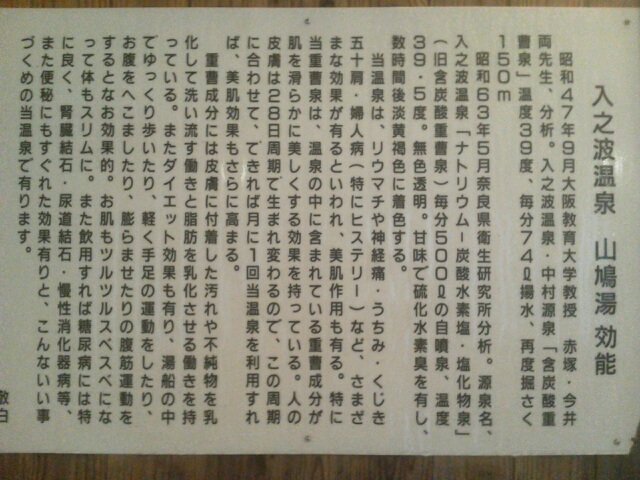 入之波温泉 山鳩湯効能
昭和47年9月大阪教育大学教授 赤塚・今井
両先生、分析。入之波温泉・中村源泉「含炭酸重
曹泉」温度39度、毎分74ℓ揚水、再度掘さく
150m
昭和63年5月奈良県衛生研究所分析。源泉名、
入之波温泉「ナトリウムー炭酸水素塩・塩化物泉」
(旧含炭酸重曹泉)毎分500ℓの自噴泉、温度
39・5度。無色透明。甘味で硫化水素臭を有し、
数時間後淡黄褐色に着色する。
当温泉は、リウマチや神経痛・うちみ・くじき
五十肩・婦人病(特にヒステリー)など、さまざ
まな効果が有るといわれ、美肌作用も有る。特に
当重曹泉は、温泉の中に含まれている重曹成分が
肌を滑らかに美しくする効果を持っている。人の
皮膚は28日周期で生まれ変わるので、この周期
に合わせて、できれば月に1回当温泉を利用すれ
ば、美肌効果もさらに高まる。
重曹成分には皮膚に付着した汚れや不純物を乳
化して洗い流す働きと脂肪を乳化させる働きを持
っている。またダイエット効果も有り、湯船の中
でゆっくり歩いたり、軽く手足の運動をしたり、
お腹をへこましたり、膨らませたりの腹筋運動を
するとなお効果的。お肌もツルツルスベスベにな
って体もスリムに。また飲用すれば糖尿病には特
に良く、腎臓結石・尿道結石・慢性消化器病等、
また便秘にもすぐれた効果有りと、こんないい事
づくめの当温泉で有ります。
敬白